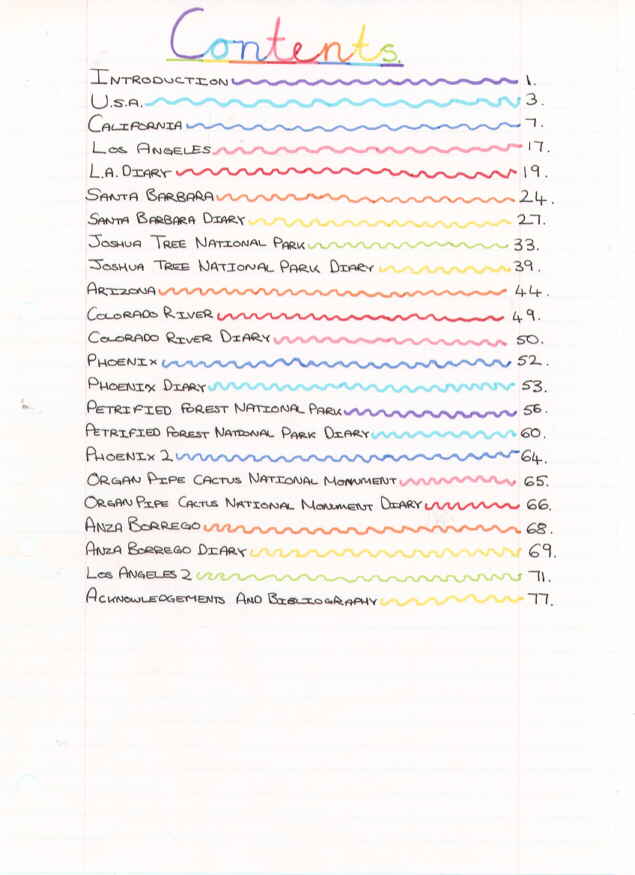 Contents.
INTRODUCTION 1.
U.S.A. 3.
CALIFORNIA 7.
LOS ANGELES 17.
L.A. DIARY 19.
SANTA BARBARA 24.
SANTA BARBARA DIARY 27.
JOSHUA TREE NATIONAL PARK 33.
JOSHUA TREE NATIONAL PARK DIARY 39.
ARIZONA 44.
COLORADO RIVER 49.
COLORADO RIVER DIARY 50.
PHOENIX 52.
PHOENIX DIARY 53.
PETRIFIED FOREST NATIONAL PARK 56.
PETRIFIED FOREST NATIONAL PARK DIARY 60.
PHOENIX 2 64.
ORGAN PIPE CACTUS NATIONAL MONUMENT 65.
ORGAN PIPE CACTUS NATIONAL MONUMENT DIARY 66.
ANZA BORREGO 68.
ANZA BORREGO DIARY 69.
LOS ANGELES 2 71.
ACKNOWLEDGEMENTS AND BIBLIOGRAPHY 77.